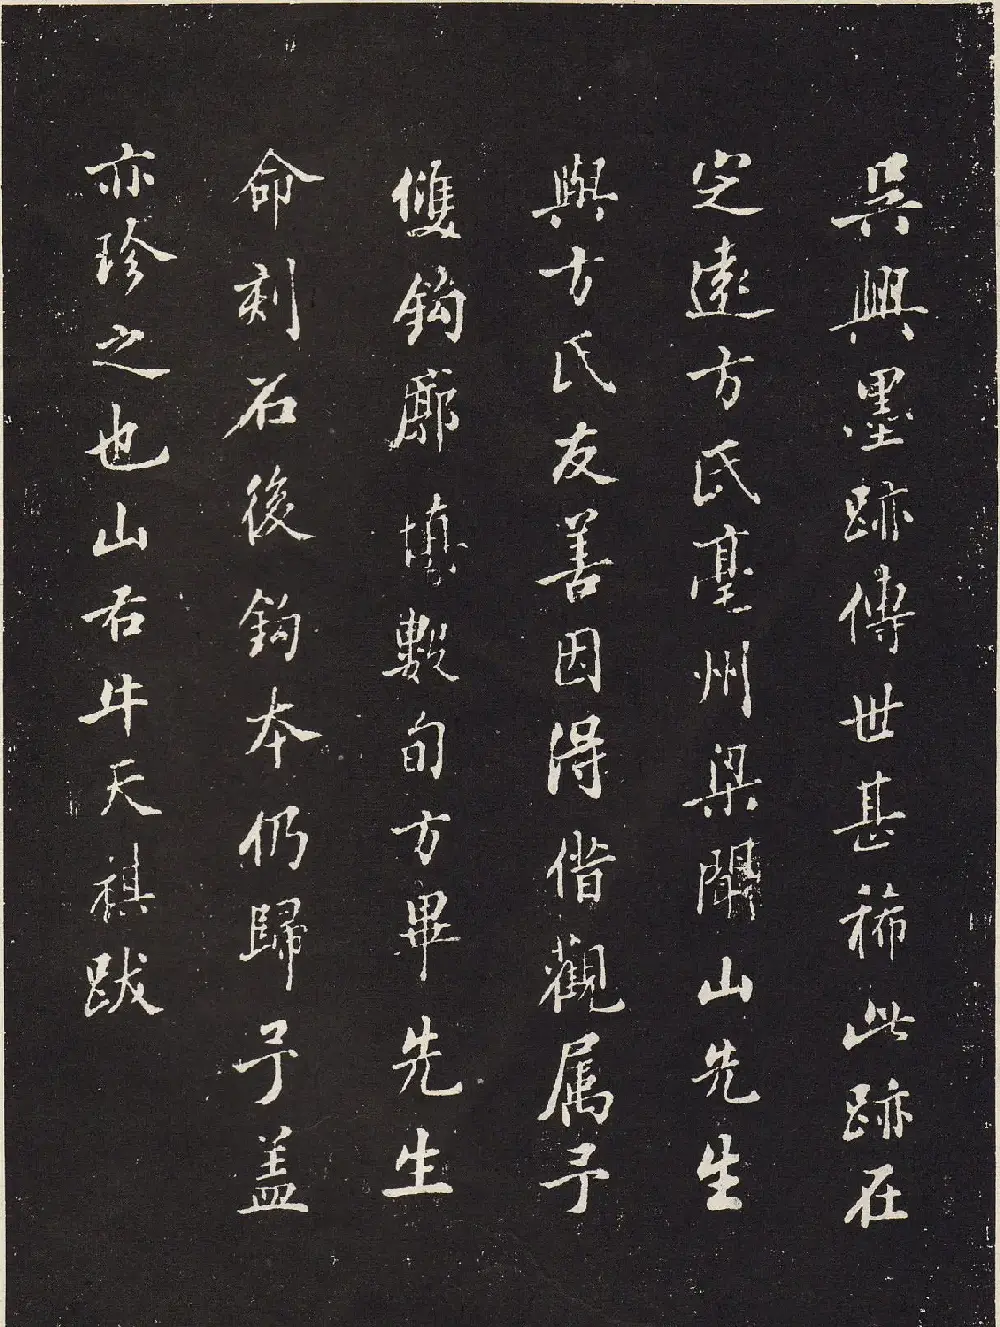 吳興墨跡傳世甚稀此跡在
定遠方氏亳州梁聞山先生
與方氏友善因得借觀属予
雙鈎廓填數旬方畢先生
命刻石後鈎本仍歸予盖
亦珍之也山右牛天祺跋